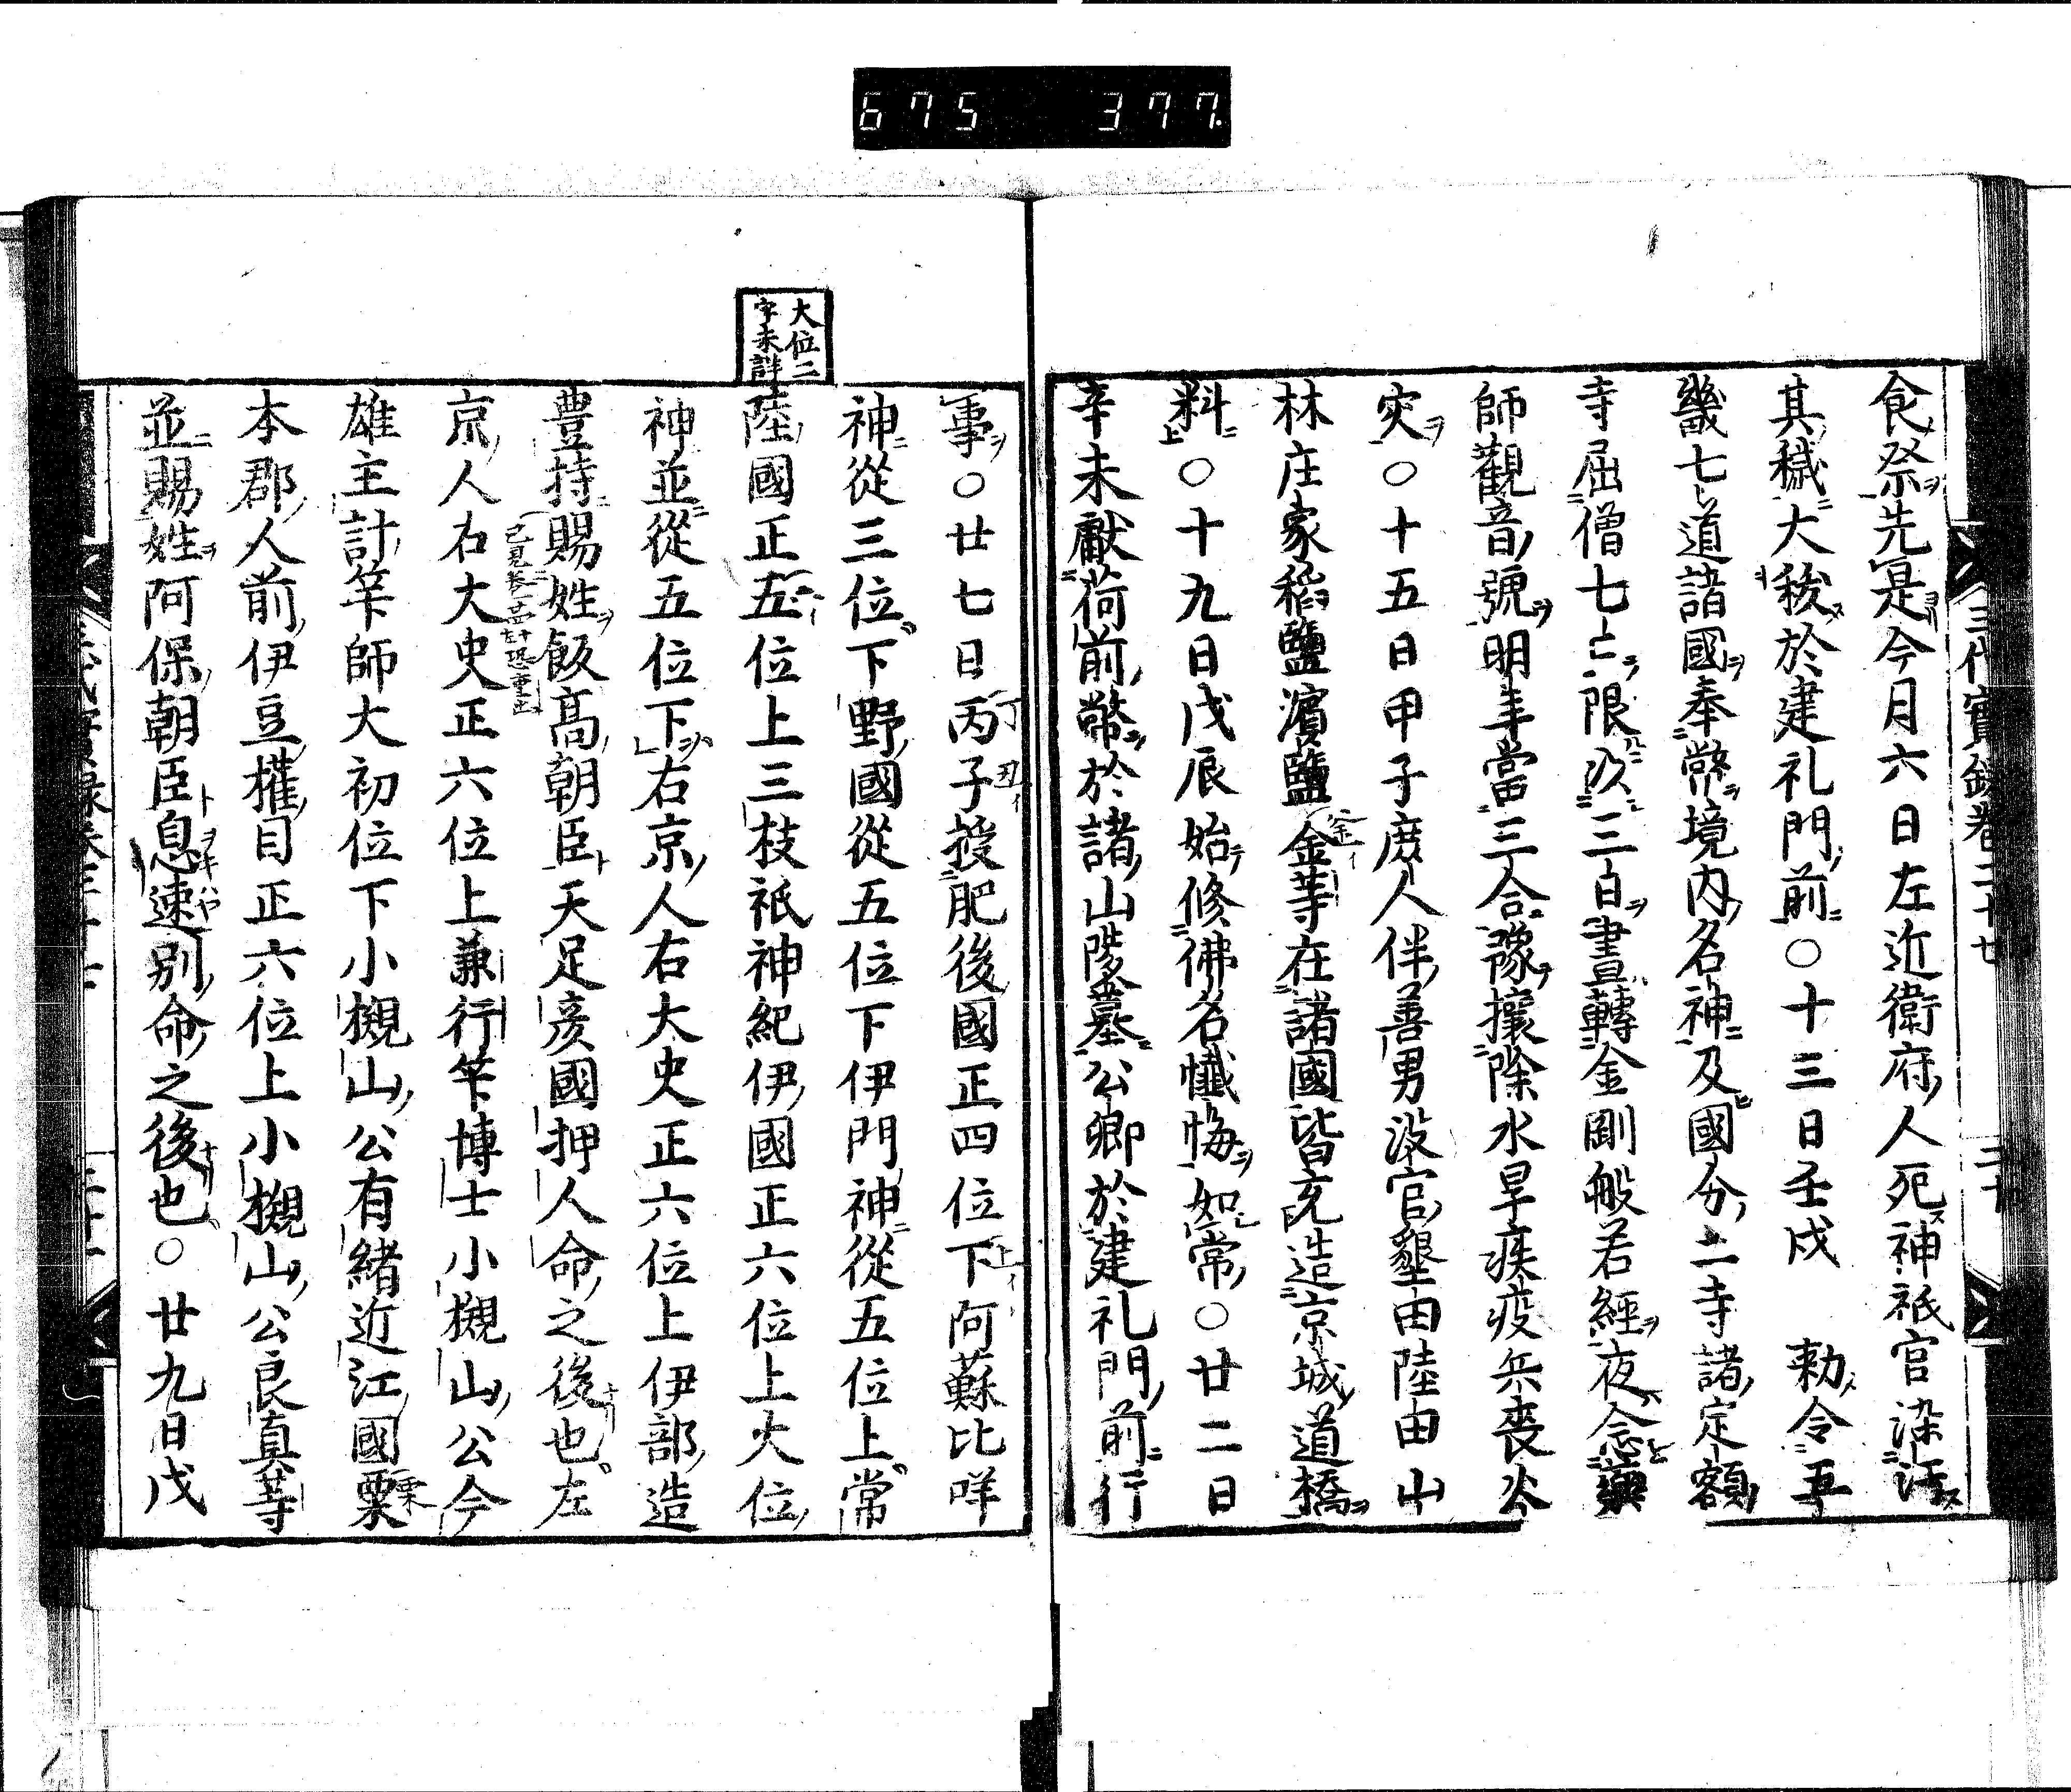 675 377
三代實録卷二十七
食祭先是今月六日左近衛府人死神祇官染汚
其穢大秡於建礼門前○十三日壬戌 勅令五
畿七道諸國奉幣境内名神及國分二寺諸定額
寺屈僧七七限以三日晝轉金剛般若經夜念藥
師觀音號明年當三合豫攘除水旱疾疫兵喪火
灾○十五日甲子庶人伴善男没官墾田陸田山
林庄家稻鹽濱鹽金等在諸國皆充造京城道橋
料○十九日戊辰始修佛名懺悔如常○廿二日
辛未獻荷前幣於諸山陵墓公卿於建礼門前行
事○廿七日丙子授肥後國正四位下阿蘇比咩
神從三位下野國從五位下伊門神從五位上常
大位二
字未詳
陸國正五位上三枝祇神紀伊國正六位上大位
神並從五位下右京人右大史正六位上伊部造
豊持賜姓飯高朝臣天足彦國押人命之後也左
京人右大史正六位上兼行筭博士小槻山公今
雄主計筭師大初位下小槻山公有緒近江國栗
本郡人前伊豆權目正六位上小槻山公良真等
並賜姓阿保朝臣息速別命之後也○廿九日戊